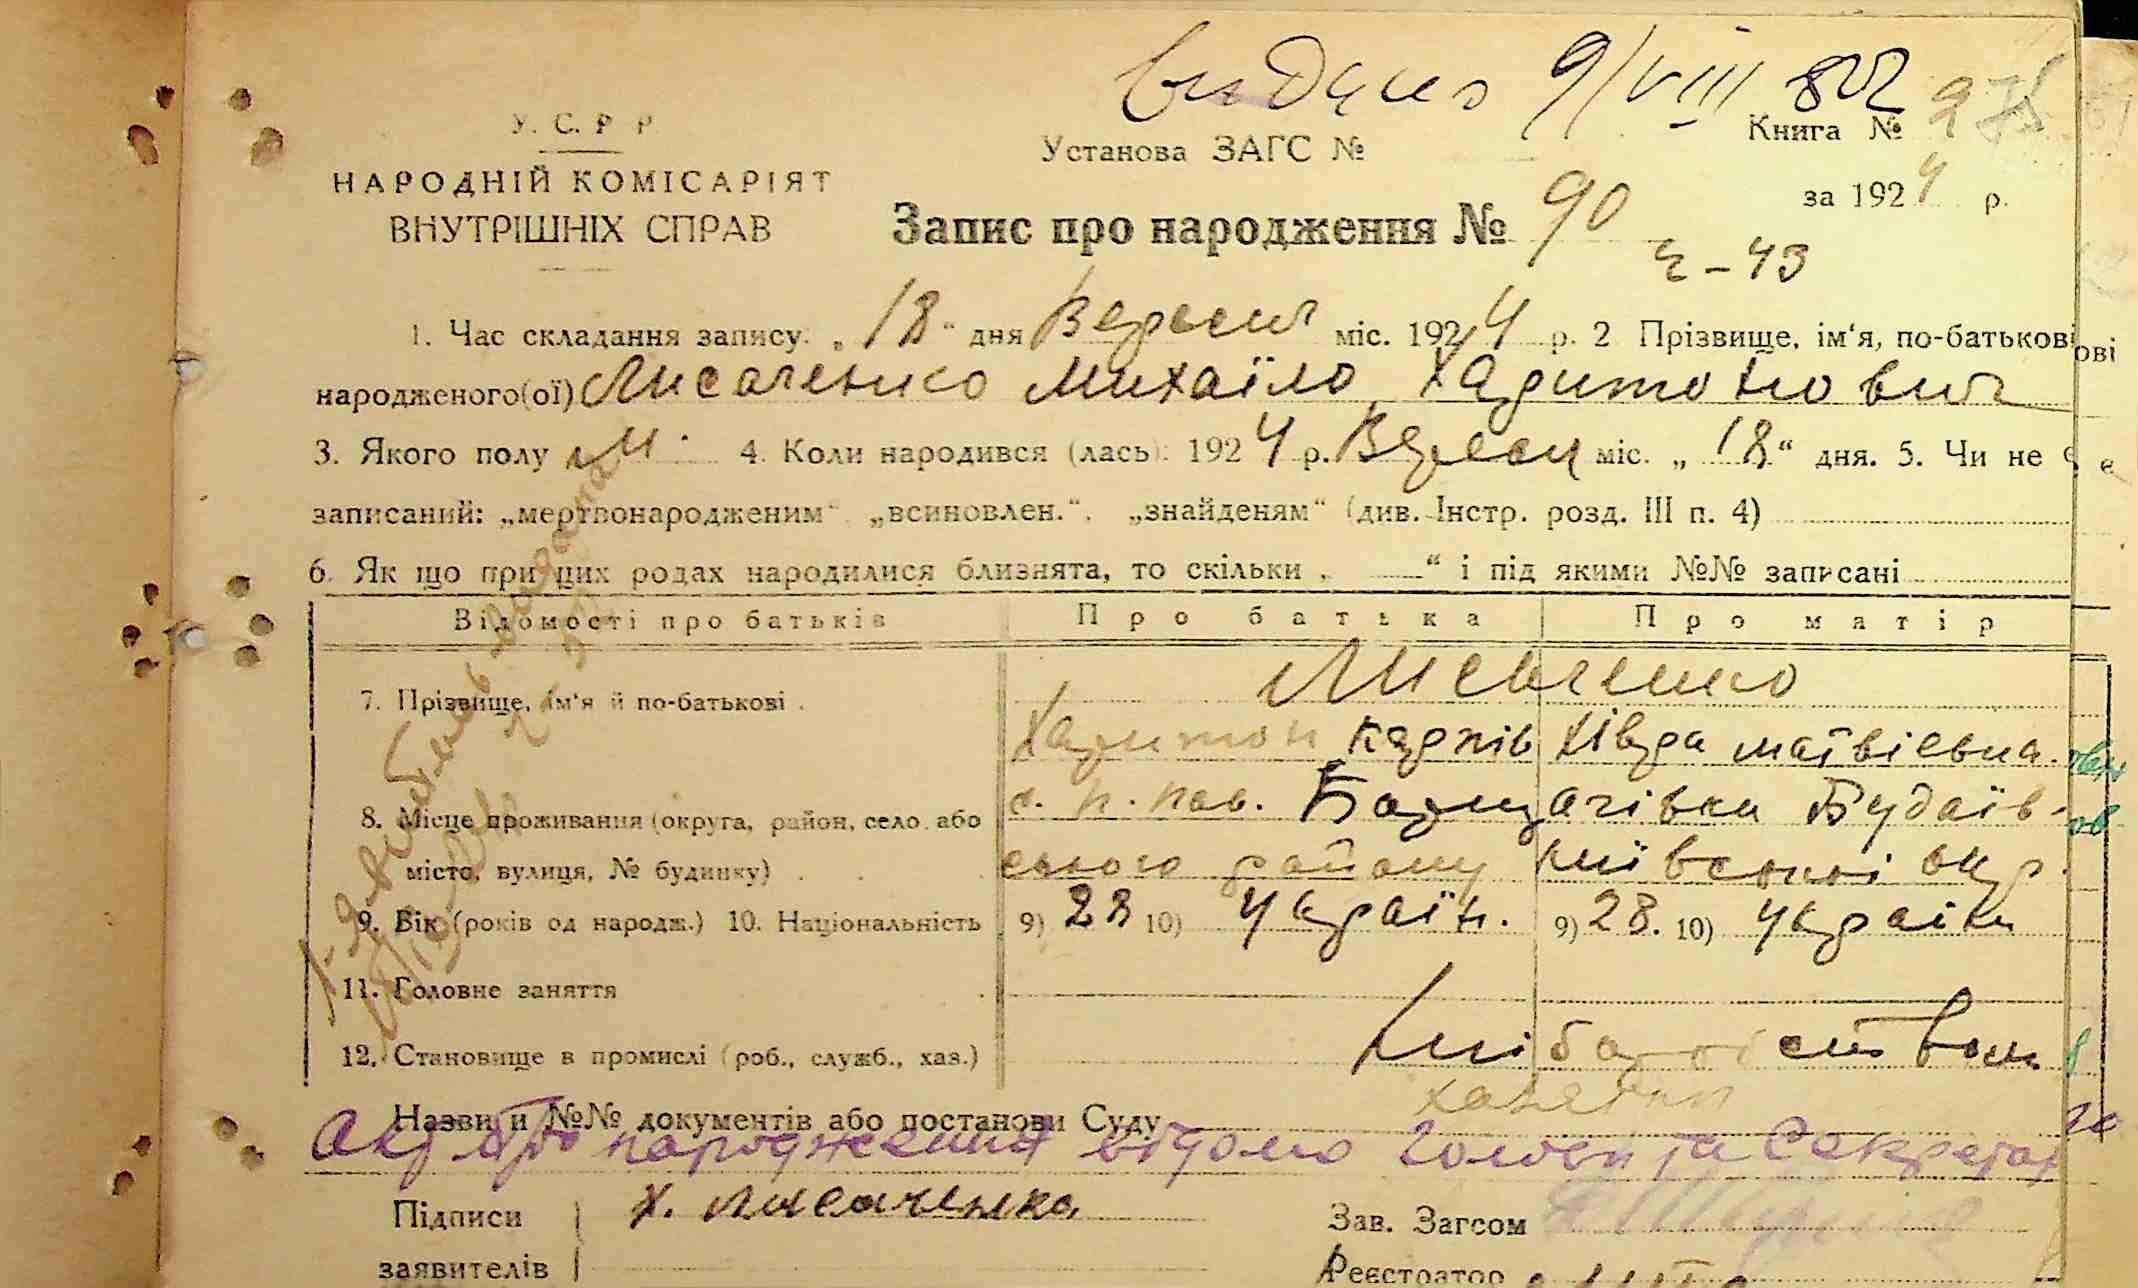 видано 9/VIII
У. С. Р Р.
Установа ЗАГС №
Книга № 275
НАРОДНІЙ КОМІСАРІЯТ
за 1924 р.
ВНУТРІШНІХ СПРАВ
Запис про народження № 90
ч-43
1. Час складання запису. „18" дня Вересня міс. 1924 р. 2 Прізвище, ім'я, по-батькові
народженого(ої) Лисаченко Михаїло Харитонович
3. Якого полу м. 4. Коли народився (лась): 1924 р. Вересня міс. „18" дня. 5. Чи не є
записаний: „мертвонародженим", „всиновлен.", „знайденям" (див. Інстр. розд. III п. 4)
6. Як що при цих родах народилися близнята, то скільки „ —" і під якими №№ записані
Відомості про батьків Про батька Про матір
Лисаченко
7. Прізвище, ім'я й по-батькові .
Харитон Карпів Хівря матвієвна.
с. п. пав. Борщагівки Будаїв-
8. Місце проживання (округа, район, село або
місто, вулиця, № будинку) . ського району Київської окр.
9. Вік (років од народж.) 10. Національність 9) 28 10) Україн. 9) 28. 10) Україн
11. Головне заняття
Хліборобством
12. Становище в промислі (роб., служб., хаз.)
Назви и №№ документів або постанови Суду
Акт про народження відомо Голови та Секретар
Підписи Х. Лисаченко
Зав. Загсом
заявителів
Реєстратор